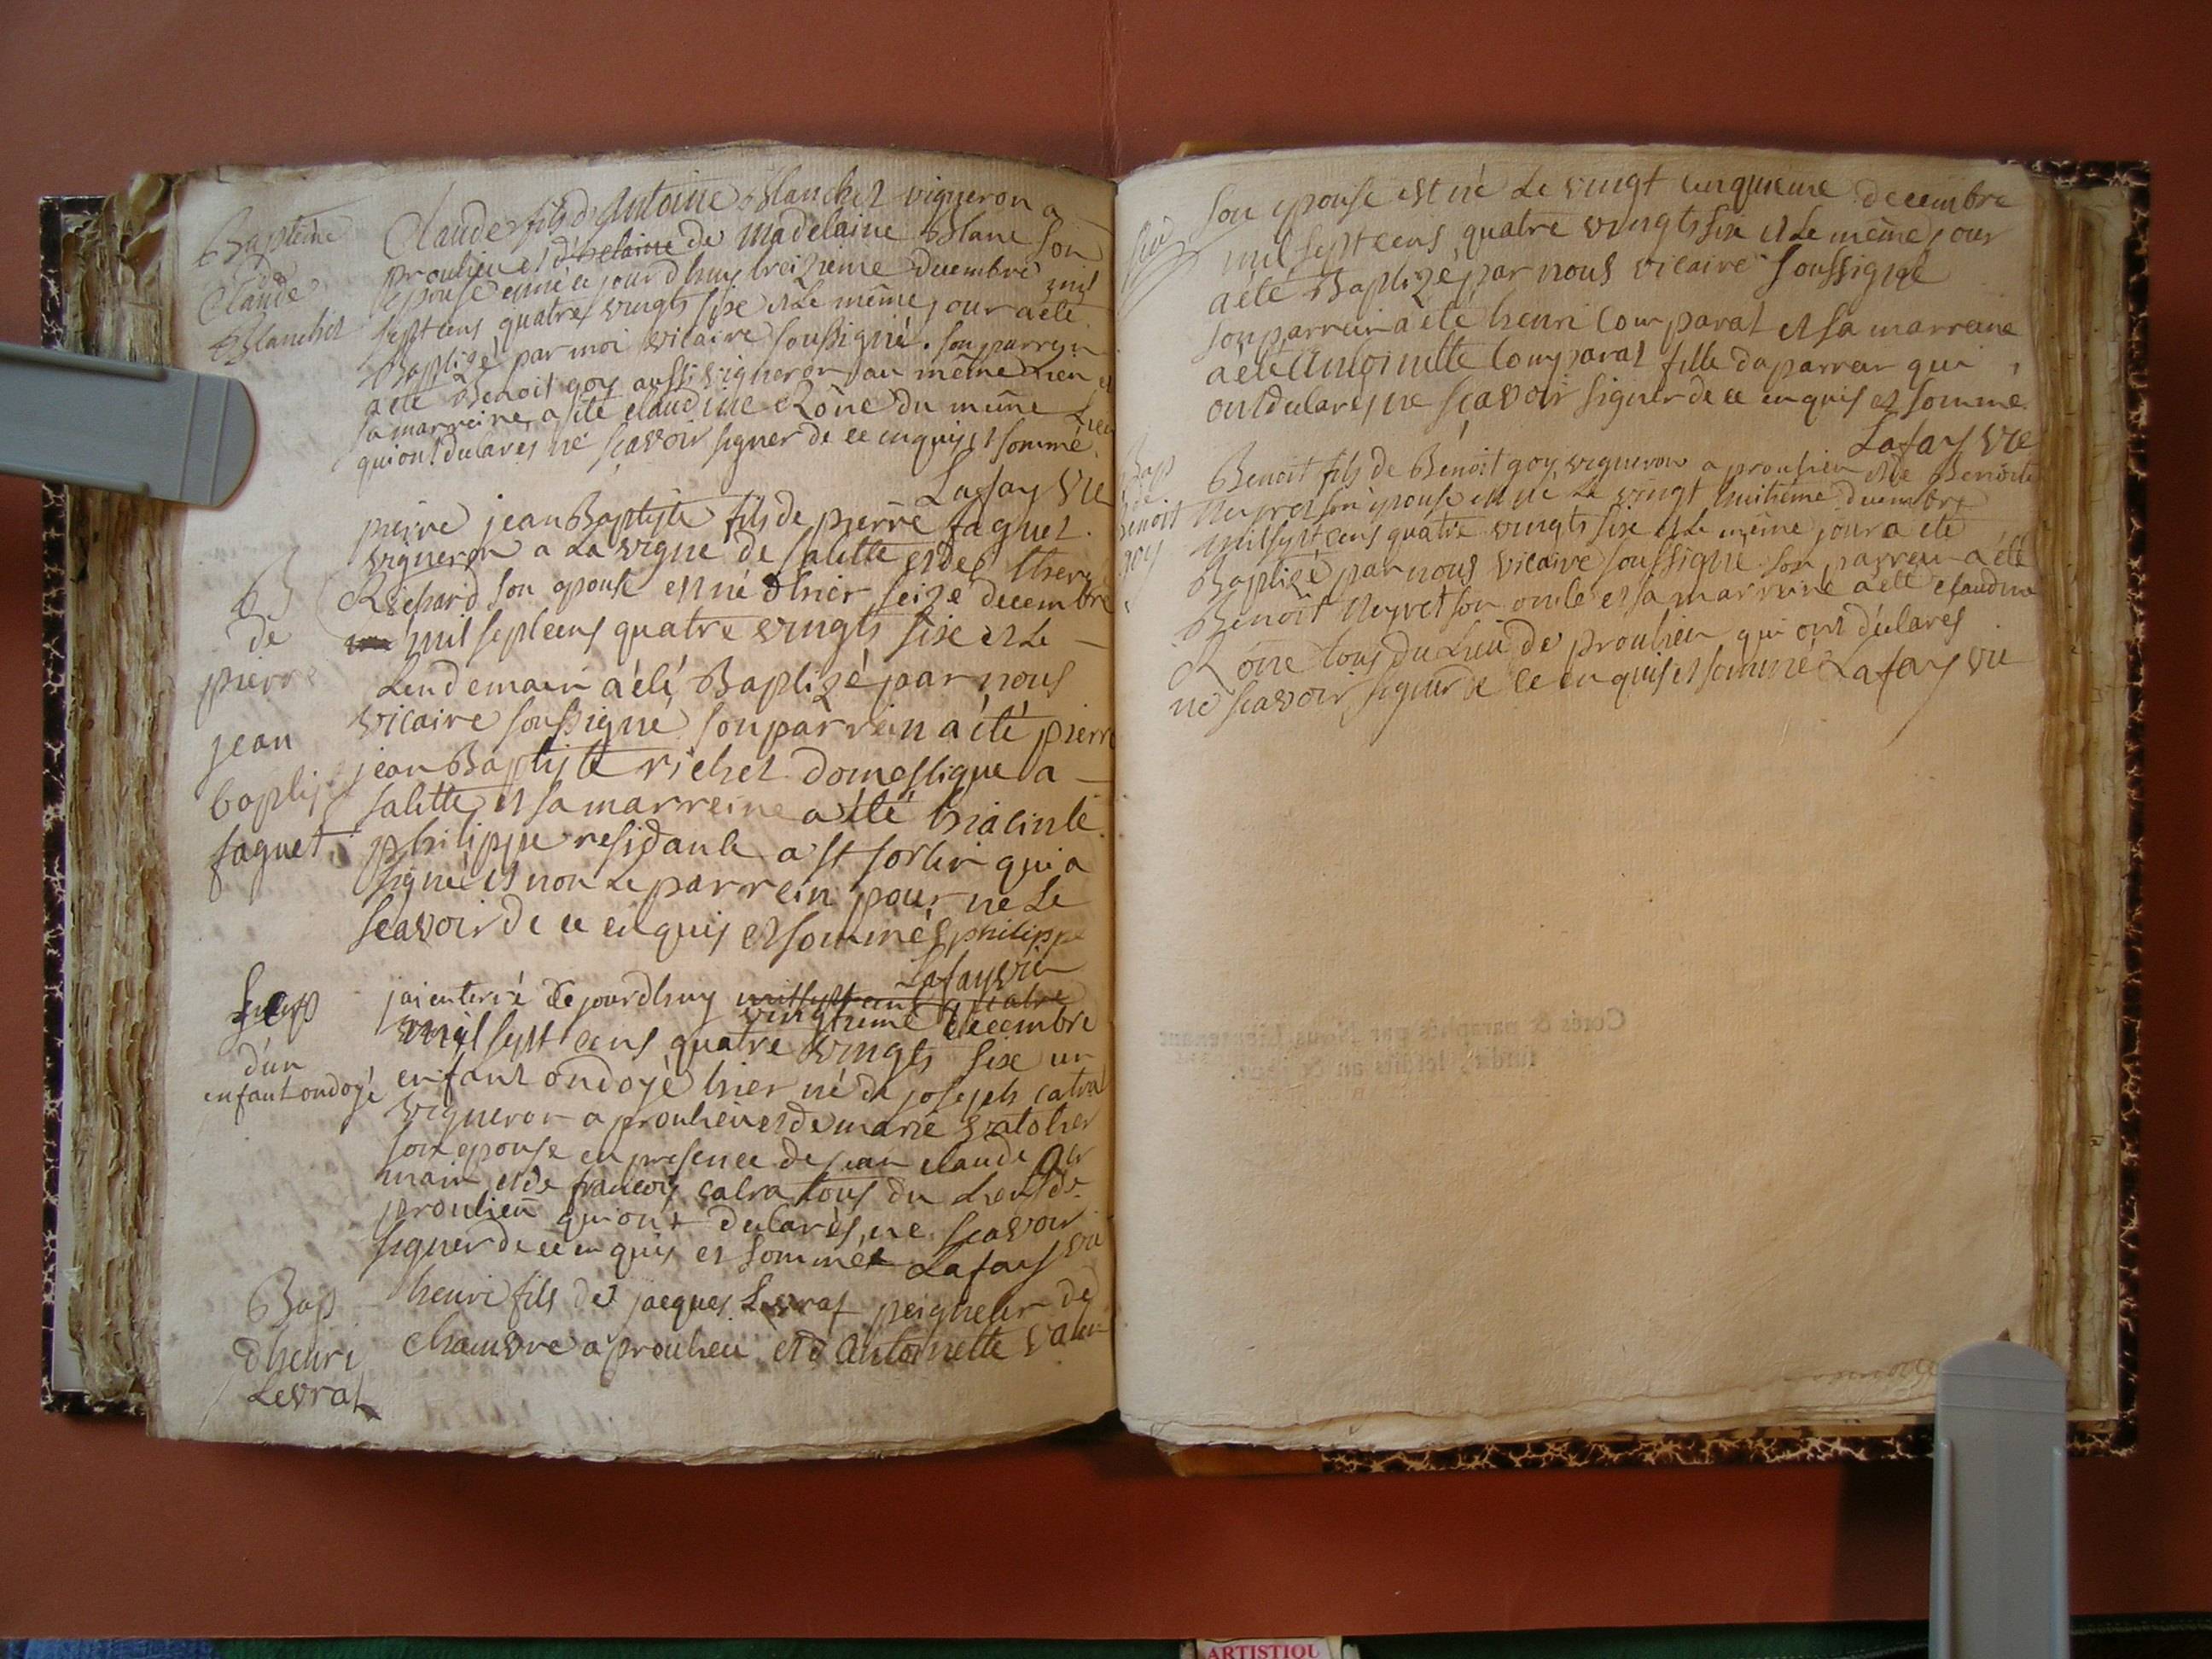 Baptême
de
Claude
Blanchet
Claude fils d'Antoine Blanchet vigneron a
proulieu et d'helaine de Madelaine Blanc son
epouse est né ce jourd'huy treizieme decembre mil
sept cens quatre vingts sixe et le même jour a été
Baptizé par moi vicaire soussigné. son parrein
a été Benoit goy aussi vigneron au même lieu et
sa marreine a été claudine Rône du même Lieu
qui ont déclarés ne sçavoir signer de ce enquis et sommé
Lafay vic
B
de
pierre
jean
baptiste
faguet
pierre jean Baptiste fils de pierre faguet
vigneron a La vigne de salette et de
Richard son epouse est né hier seize decembre
mil sept cens quatre vingts sixe et Le
Lendemain a été Baptizé par nous
vicaire soussigné son parrein a été pierre
jean Baptiste richet domestique a
salette et sa marreine a été hiacinte
philippe residante a st sorlin qui a
signé et non Le parrein pour ne Le
sçavoir de ce enquis et sommé philippe
Lafay vic
d'un
enfant ondoyé
j'ai enterré ce jourd'huy mil sept cens quatre
vingtieme decembre
mil sept cens quatre vingts sixe un
enfant ondoyé hier né de joseph catra
vigneron a proulieu et de marie
son epouse en presence de jean claude
main et de francois catra tous du Lieu de
proulieu qui ont déclarés ne sçavoir
signer de ce enquis et sommé Lafay vic
Bap
d'henri
Levrat
henri fils de jacques Levrat peigneur de
chanvre a proulieu et d'Antoinette
son epouse est né Le vingt cinquieme decembre
mil sept cens quatre vingts sixe et Le même jour
a été Baptizé par nous vicaire soussigné
son parrein a été henri Comparat et sa marreine
a été Antoinette Comparat fille du parrein qui
ont déclarés ne sçavoir signer de ce enquis et sommé
Lafay vic
Bap
de
benoit
goy
Benoit fils de Benoit goy vigneron a proulieu et de Benoite
Neyret son epouse est né Le vingt huitieme decembre
mil sept cens quatre vingts sixe et Le même jour a été
Baptizé par nous vicaire soussigné son parrein a été
Benoit Neyret son oncle et sa marreine a été claudine
Rône tous du Lieu de proulieu qui ont déclarés
ne sçavoir signer de ce enquis et sommé Lafay vic
ARTISTIQU